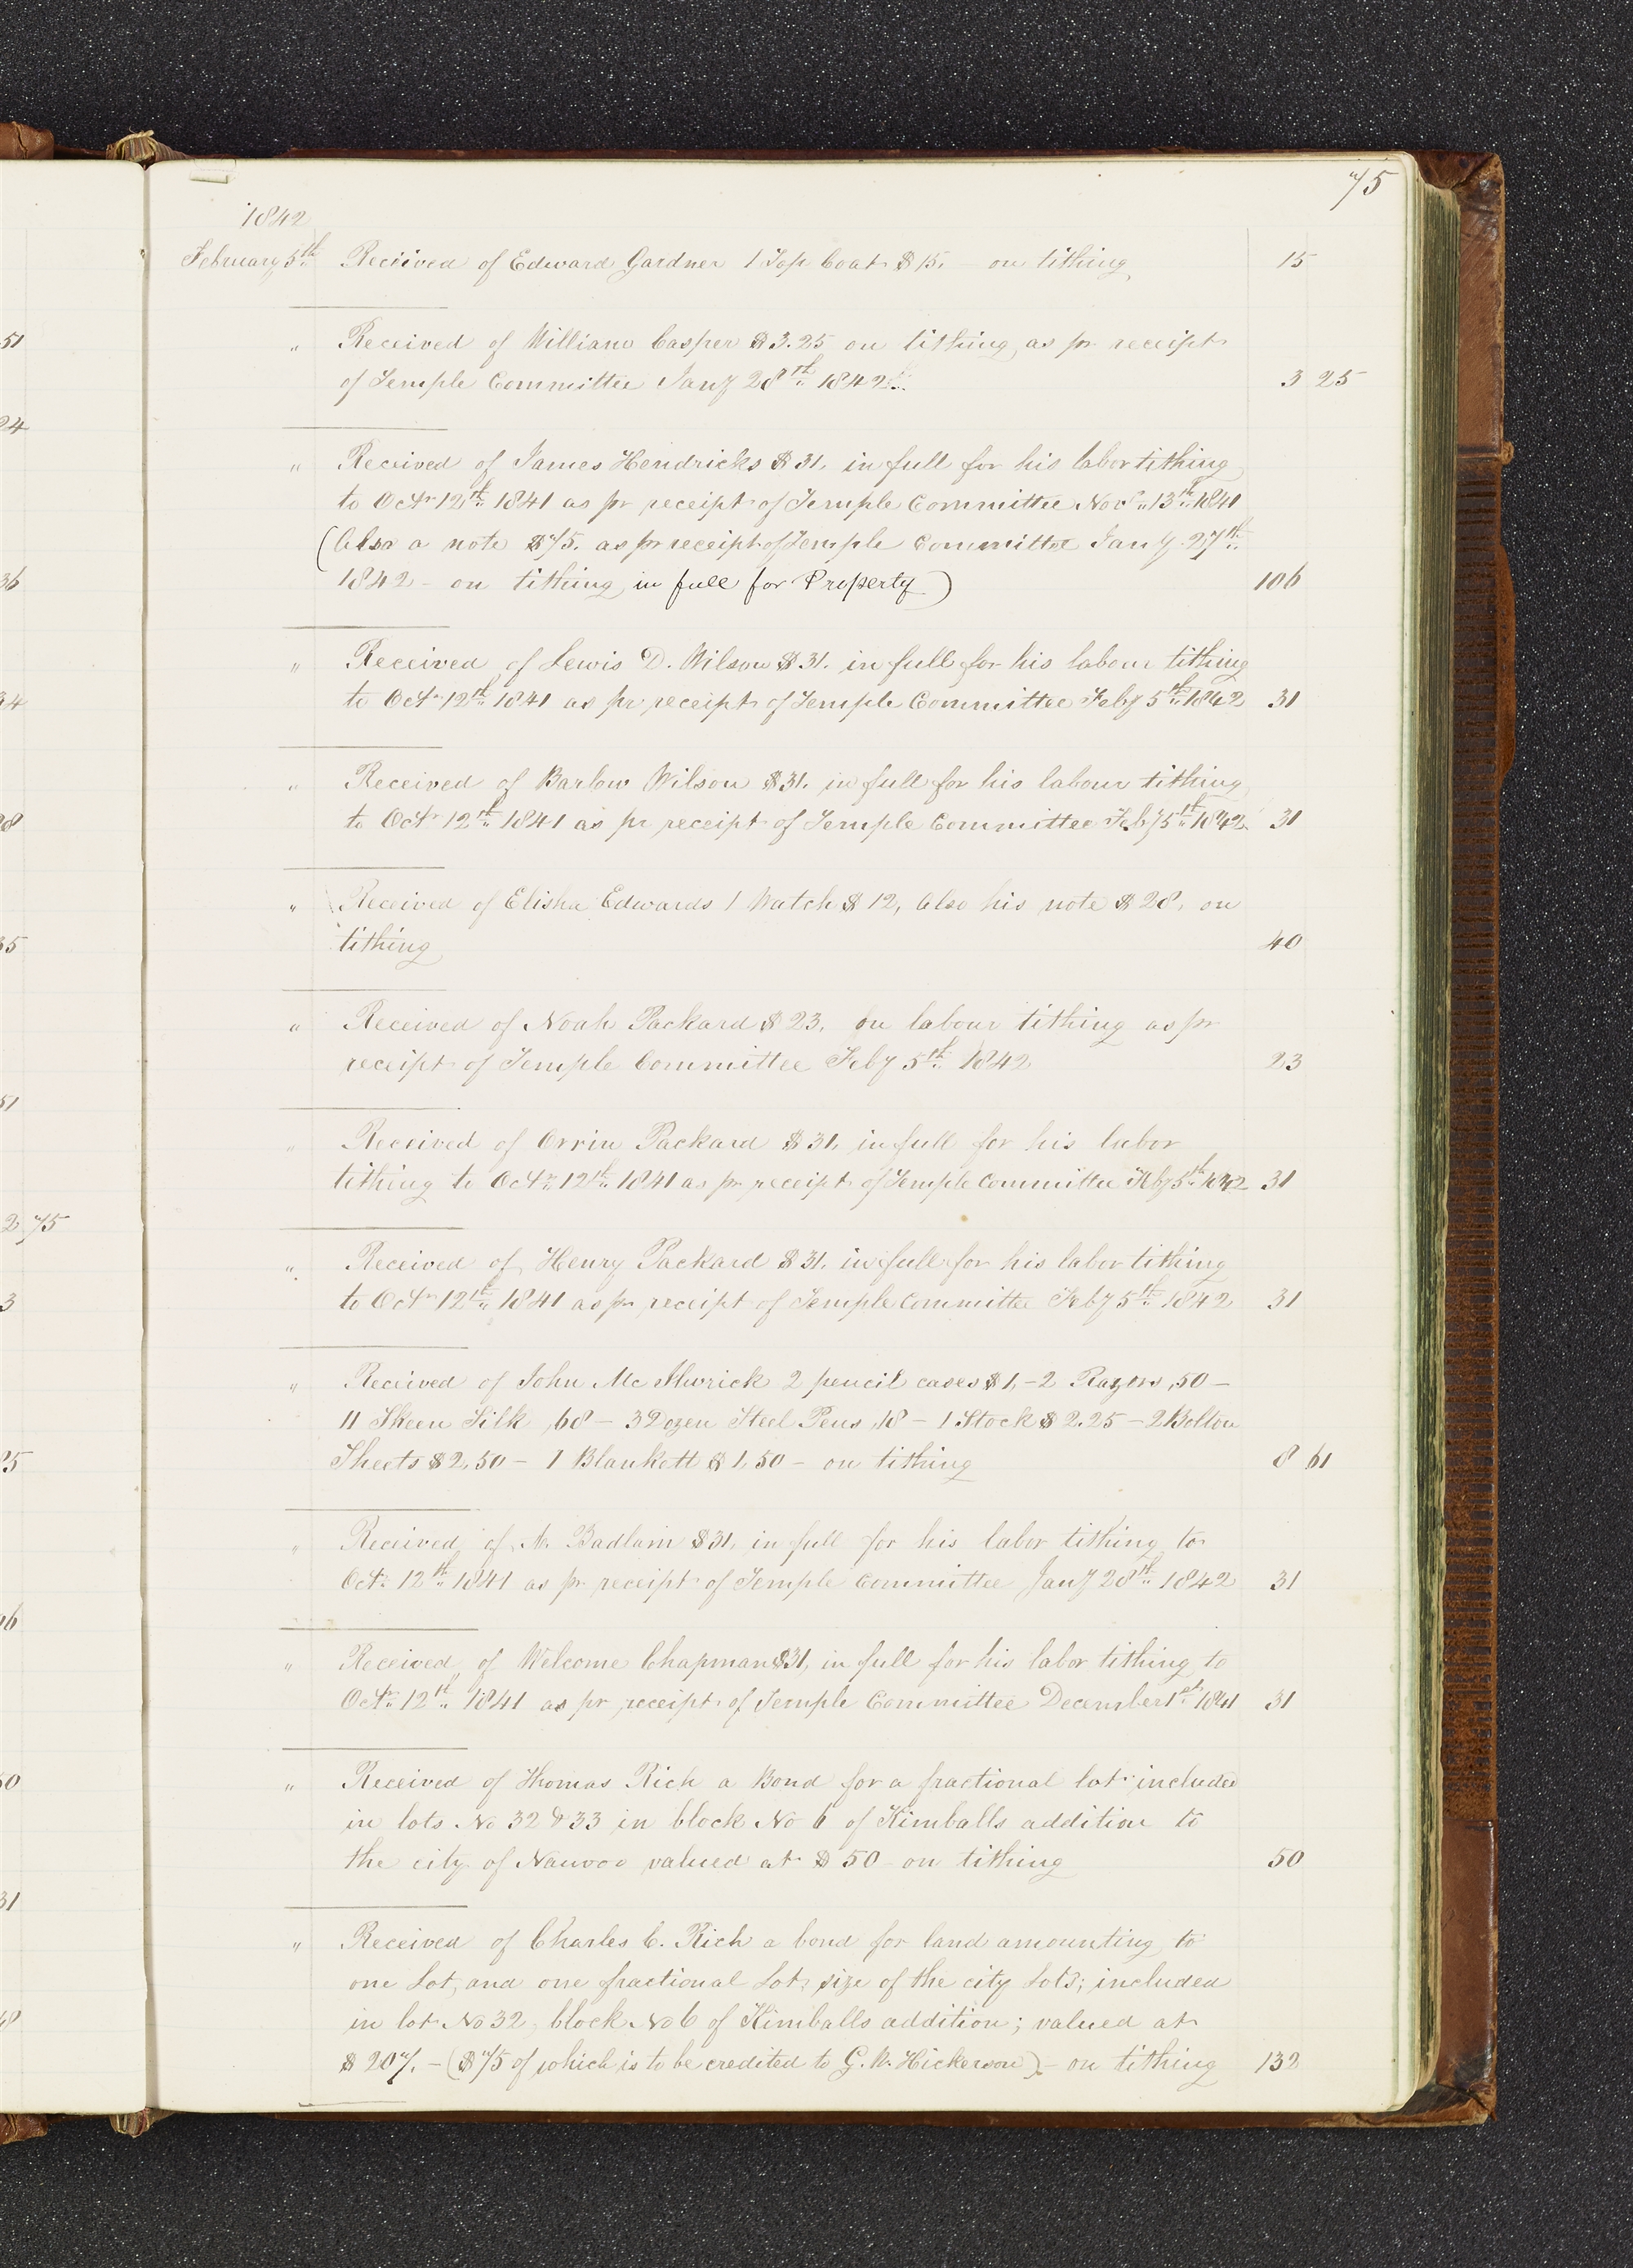 75
1842
February 5th Received of Edward Gardner 1 Top Coat $15. on tithing 15
" Received of William Casper $3.25 on tithing, as pr receipt
of Temple Committee Jany 28th 1842 3 25
" Received of James Hendricks $31. in full for his labor tithing
to Octr 12th 1841 as pr receipt of Temple Committee Novr 13th 1841
(Also a note $75. as pr receipt of Temple Committee Jany 27th
1842 - on tithing, in full for Property) 106
" Received of Lewis D. Wilson $31. in full for his labour tithing
to Octr 12th 1841 as pr receipt of Temple Committee Feby 5th 1842 31
" Received of Barlow Wilson $31. in full for his labour tithing
to Octr 12th 1841 as pr receipt of Temple Committee Feby 5th 1842 31
" Received of Elisha Edwards 1 Watch $12, Also his note $28, on
tithing 40
" Received of Noah Packard $23. on labour tithing as pr
receipt of Temple Committee Feby 5th 1842 23
" Received of Orrin Packard $31, in full for his labor
tithing to Octr 12th 1841 as pr receipt of Temple Committee Feby 5th 1842 31
" Received of Henry Packard $31. in full for his labor tithing
to Octr 12th 1841 as pr receipt of Temple Committee Feby 5th 1842 31
" Received of John Mc Ilwrick 2 pencil cases $1,-2 Razors ,50 -
11 Skeen Silk ,68 - 3 Dozen Steel Pens ,18 - 1 Stock $2.25 - 2 Bolton
Sheets $2,50 - 1 Blankett $1,50 - on tithing 8 61
" Received of A. Badlam $31, in full for his labor tithing to
Octr 12th 1841 as pr receipt of Temple Committee Jany 28th 1842 31
" Received of Welcome Chapman $31, in full for his labor tithing to
Octr 12th 1841 as pr receipt of Temple Committee December 1st 1841 31
" Received of Thomas Rich a Bond for a fractional lot included
in lots No 32 & 33 in block No 6 of Kimballs addition to
the city of Nauvoo valued at $50 on tithing 50
" Received of Charles C. Rich a bond for land amounting to
one Lot, and one fractional Lot, size of the city Lots; included
in lot No 32, block No 6 of Kimballs addition; valued at
$207. - ($75 of which is to be credited to G. W. Hickerson) - on tithing 132
51
24
36
34
28
35
51
2 75
3
85
96
50
31
48